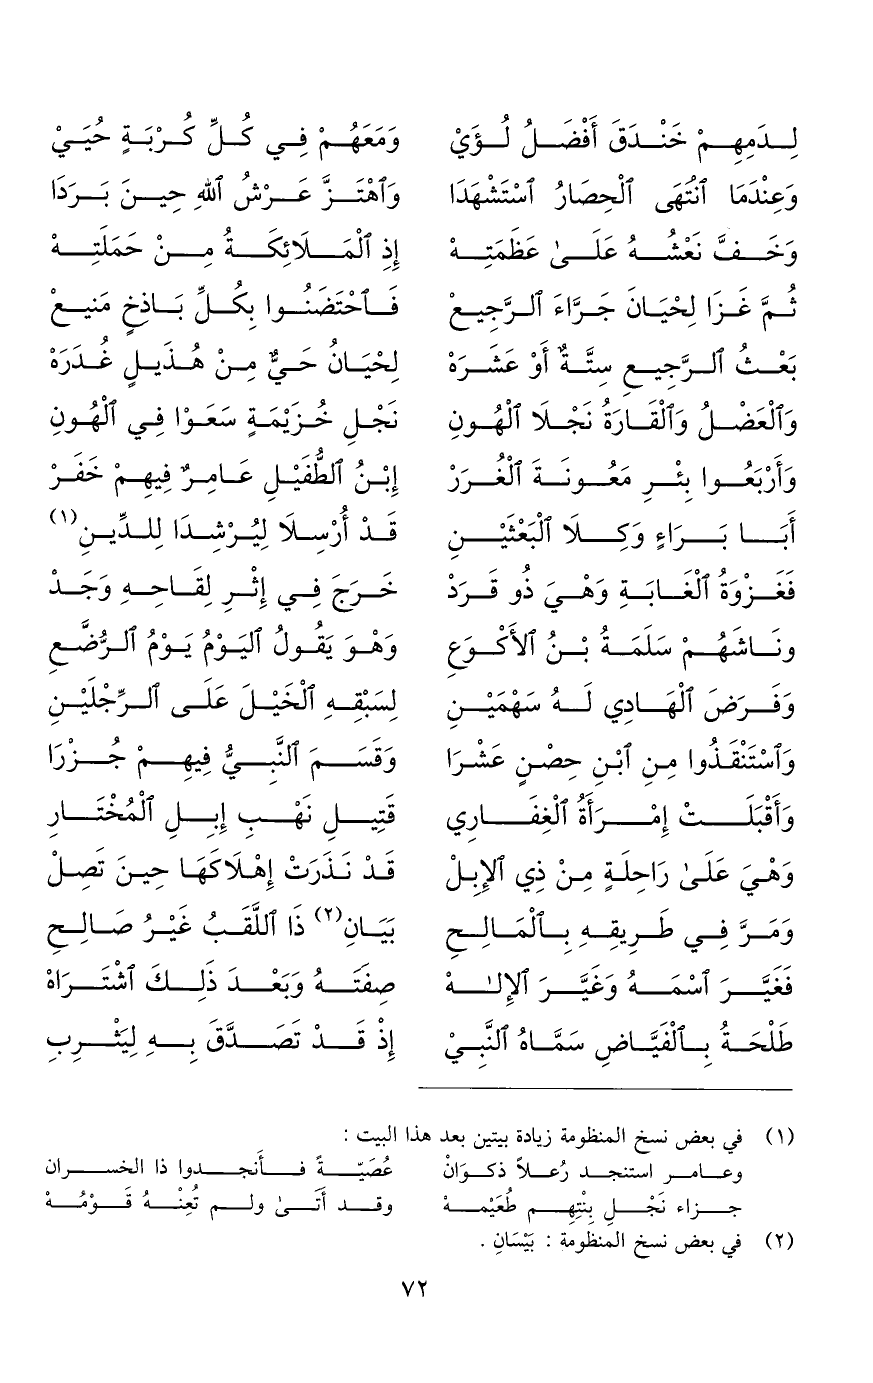 لِدَمِهِمْ خَنْدَقَ أَفْضَلُ لُؤَيْ وَمَعَهُمْ فِي كُلِّ كُرْبَةٍ حُيَيْ
وَعِنْدَمَا ٱنْتُهَى ٱلْحِصَارُ ٱسْتَشْهَدَا وَٱهْتَزَّ عَرْشُ ٱللهِ حِينَ بَرَدَا
وَخَفَّ نَعْشُهُ عَلَىٰ عَظَمَتِهْ إِذِ ٱلْمَلَائِكَةُ مِنْ حَمَلَتِهْ
ثُمَّ غَزَا لِحْيَانَ جَرَّاءَ ٱلرَّجِيعْ فَٱحْتَضَنُوا بِكُلِّ بَاذِخٍ مَنِيعْ
بَعْثُ ٱلرَّجِيعِ سِتَّةٌ أَوْ عَشَرَهْ لِحْيَانُ حَيٌّ مِنْ هُذَيلٍ غُدَرَهْ
وَٱلْعَضْلُ وَٱلْقَارَةُ نَجْلَا ٱلْهُونِ نَجْلِ خُزَيْمَةٍ سَعَوْا فِي ٱلْهُونِ
وَأَرْبَعُوا بِئْرِ مَعُونَةَ ٱلْغُرَرْ إِبْنُ ٱلطُّفَيْلِ عَامِرٌ فِيهِمْ خَفَرْ
أَبَا بَرَاءٍ وَكِلَا ٱلْبَعْثَيْنِ قَدْ أُرْسِلَا لِيُرْشِدَا لِلدِّينِ(١)
فَغَزْوَةُ ٱلْغَابَةِ وَهْيَ ذُو قَرَدْ خَرَجَ فِي إِثْرِ لِقَاحِهِ وَجَدْ
وَنَاشَهُمْ سَلَمَةُ بْنُ ٱلأَكْوَعِ وَهْوَ يَقُولُ ٱليَوْمُ يَوْمُ ٱلرُّضَّعِ
وَفَرَضَ ٱلْهَادِي لَهُ سَهْمَيْنِ لِسَبْقِهِ ٱلْخَيْلَ عَلَى ٱلرِّجْلَيْنِ
وَٱسْتَنْقَذُوا مِنِ ٱبْنِ حِصْنٍ عَشْرَا وَقَسَمَ ٱلنَّبِيُّ فِيهِمْ جُزْرَا
وَأَقْبَلَتْ إِمْرَأَةُ ٱلْغِفَارِي قَتِيلِ نَهْبِ إِبِلِ ٱلْمُخْتَارِ
وَهْيَ عَلَىٰ رَاحِلَةٍ مِنْ ذِي ٱلإِبِلْ قَدْ نَذَرَتْ إِهْلَاكَهَا حِينَ تَصِلْ
وَمَرَّ فِي طَرِيقِهِ بِٱلْمَالِحِ بَيَانِ(٢) ذَا ٱللَّقَبُ غَيْرُ صَالِحِ
فَغَيَّرَ ٱسْمَهُ وَغَيَّرَ ٱلإِلٰهْ صِفَتَهُ وَبَعْدَ ذَلِكَ ٱشْتَرَاهْ
طَلْحَةُ بِٱلْفَيَّاضِ سَمَّاهُ ٱلنَّبِيْ إِذْ قَدْ تَصَدَّقَ بِهِ لِيَثْرِبِ
(١) في بعض نسخ المنظومة زيادة بيتين بعد هذا البيت :
وعامر استنجد رُعلاً ذكوَانْ عُصَيّةً فأنجدوا ذا الخسران
جزاء نَجْلِ بِنْتِهِم طُعَيْمهْ وقد أَتَىٰ ولم تُعِنْهُ قَوْمُهْ
(٢) في بعض نسخ المنظومة : بَيْسَانِ .
٧٢